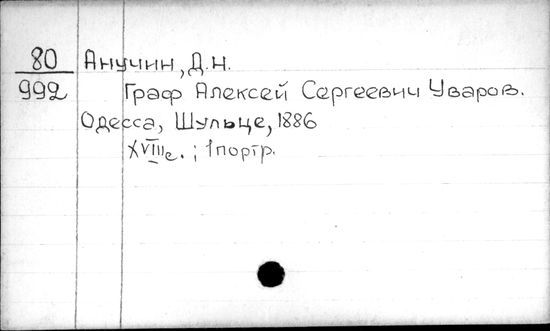 80 Анучин, Д.Н.
992 Граф Алексей Сергеевич Уваров.
Одесса, Шульце, 1886
XVIIIс. ; 1портр.